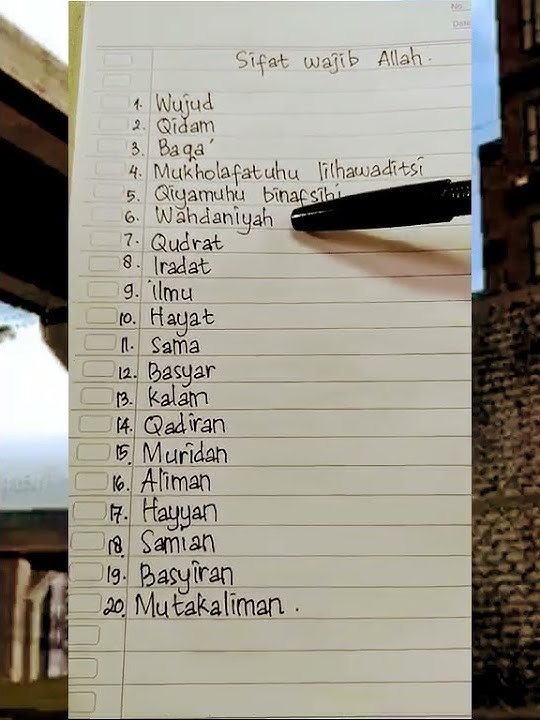 No.
Date
Sifat wajib Allah.
1. Wujud
2. Qidam
3. Baqa'
4. Mukholafatuhu lilhawaditsi
5. Qiyamuhu binafsihi
6. Wahdaniyah
7. Qudrat
8. Iradat
9. ilmu
10. Hayat
11. Sama
12. Basyar
13. Kalam
14. Qadiran
15. Muridan
16. Aliman
17. Hayyan
18. Samian
19. Basyiran
20. Mutakaliman.